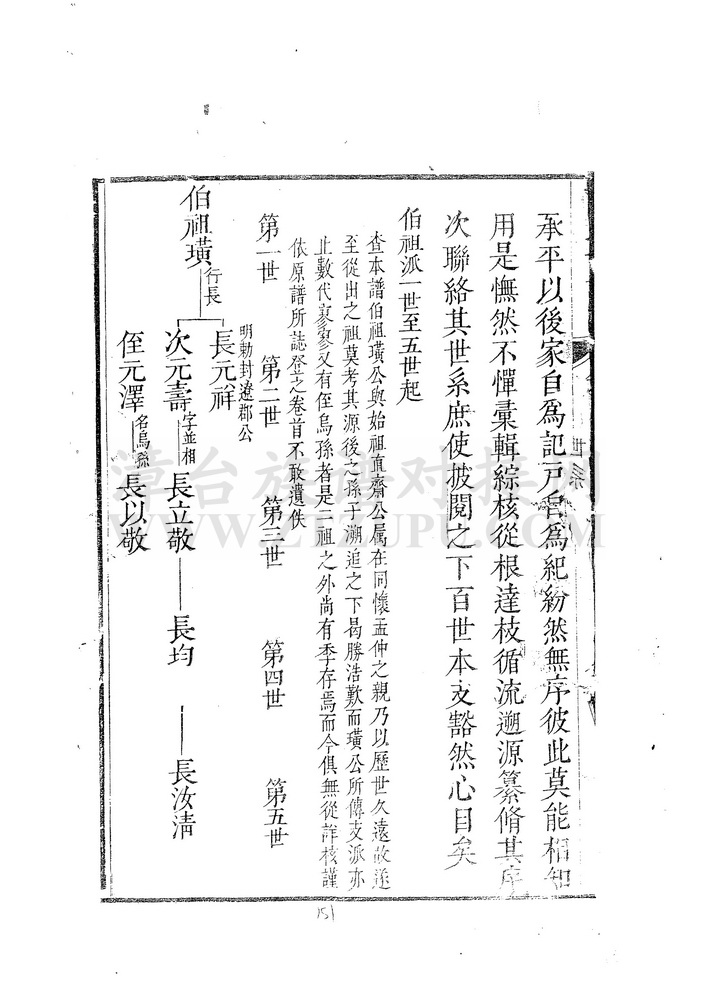 承平以後家自為記戶自為紀紛然無序彼此莫能相知
用是憮然不憚彙輯綜核從根達枝循流遡源纂脩其序
次聯絡其世系庶使披閱之下百世本支豁然心目矣
伯祖派一世至五世起
查本譜伯祖璜公與始祖直齋公属在同懷孟仲之親乃以歷世久遠故遂
至從出之祖莫考其源後之孫子溯追之下曷勝浩歎而璜公所傳支派亦
止數代寥寥又有侄烏孫者是二祖之外尚有季存焉而今俱無從詳核謹
依原譜所誌登之卷首不敢遺佚
第一世 第二世 第三世 第四世 第五世
明勅封遼郡公
伯祖璜 行長 長元祥
次元壽 字並相 長立敬 長均 長汝淸
侄元澤 名烏孫 長以敬
世系
151
漳台族谱对接网
WWW.ZTZUPU.COM